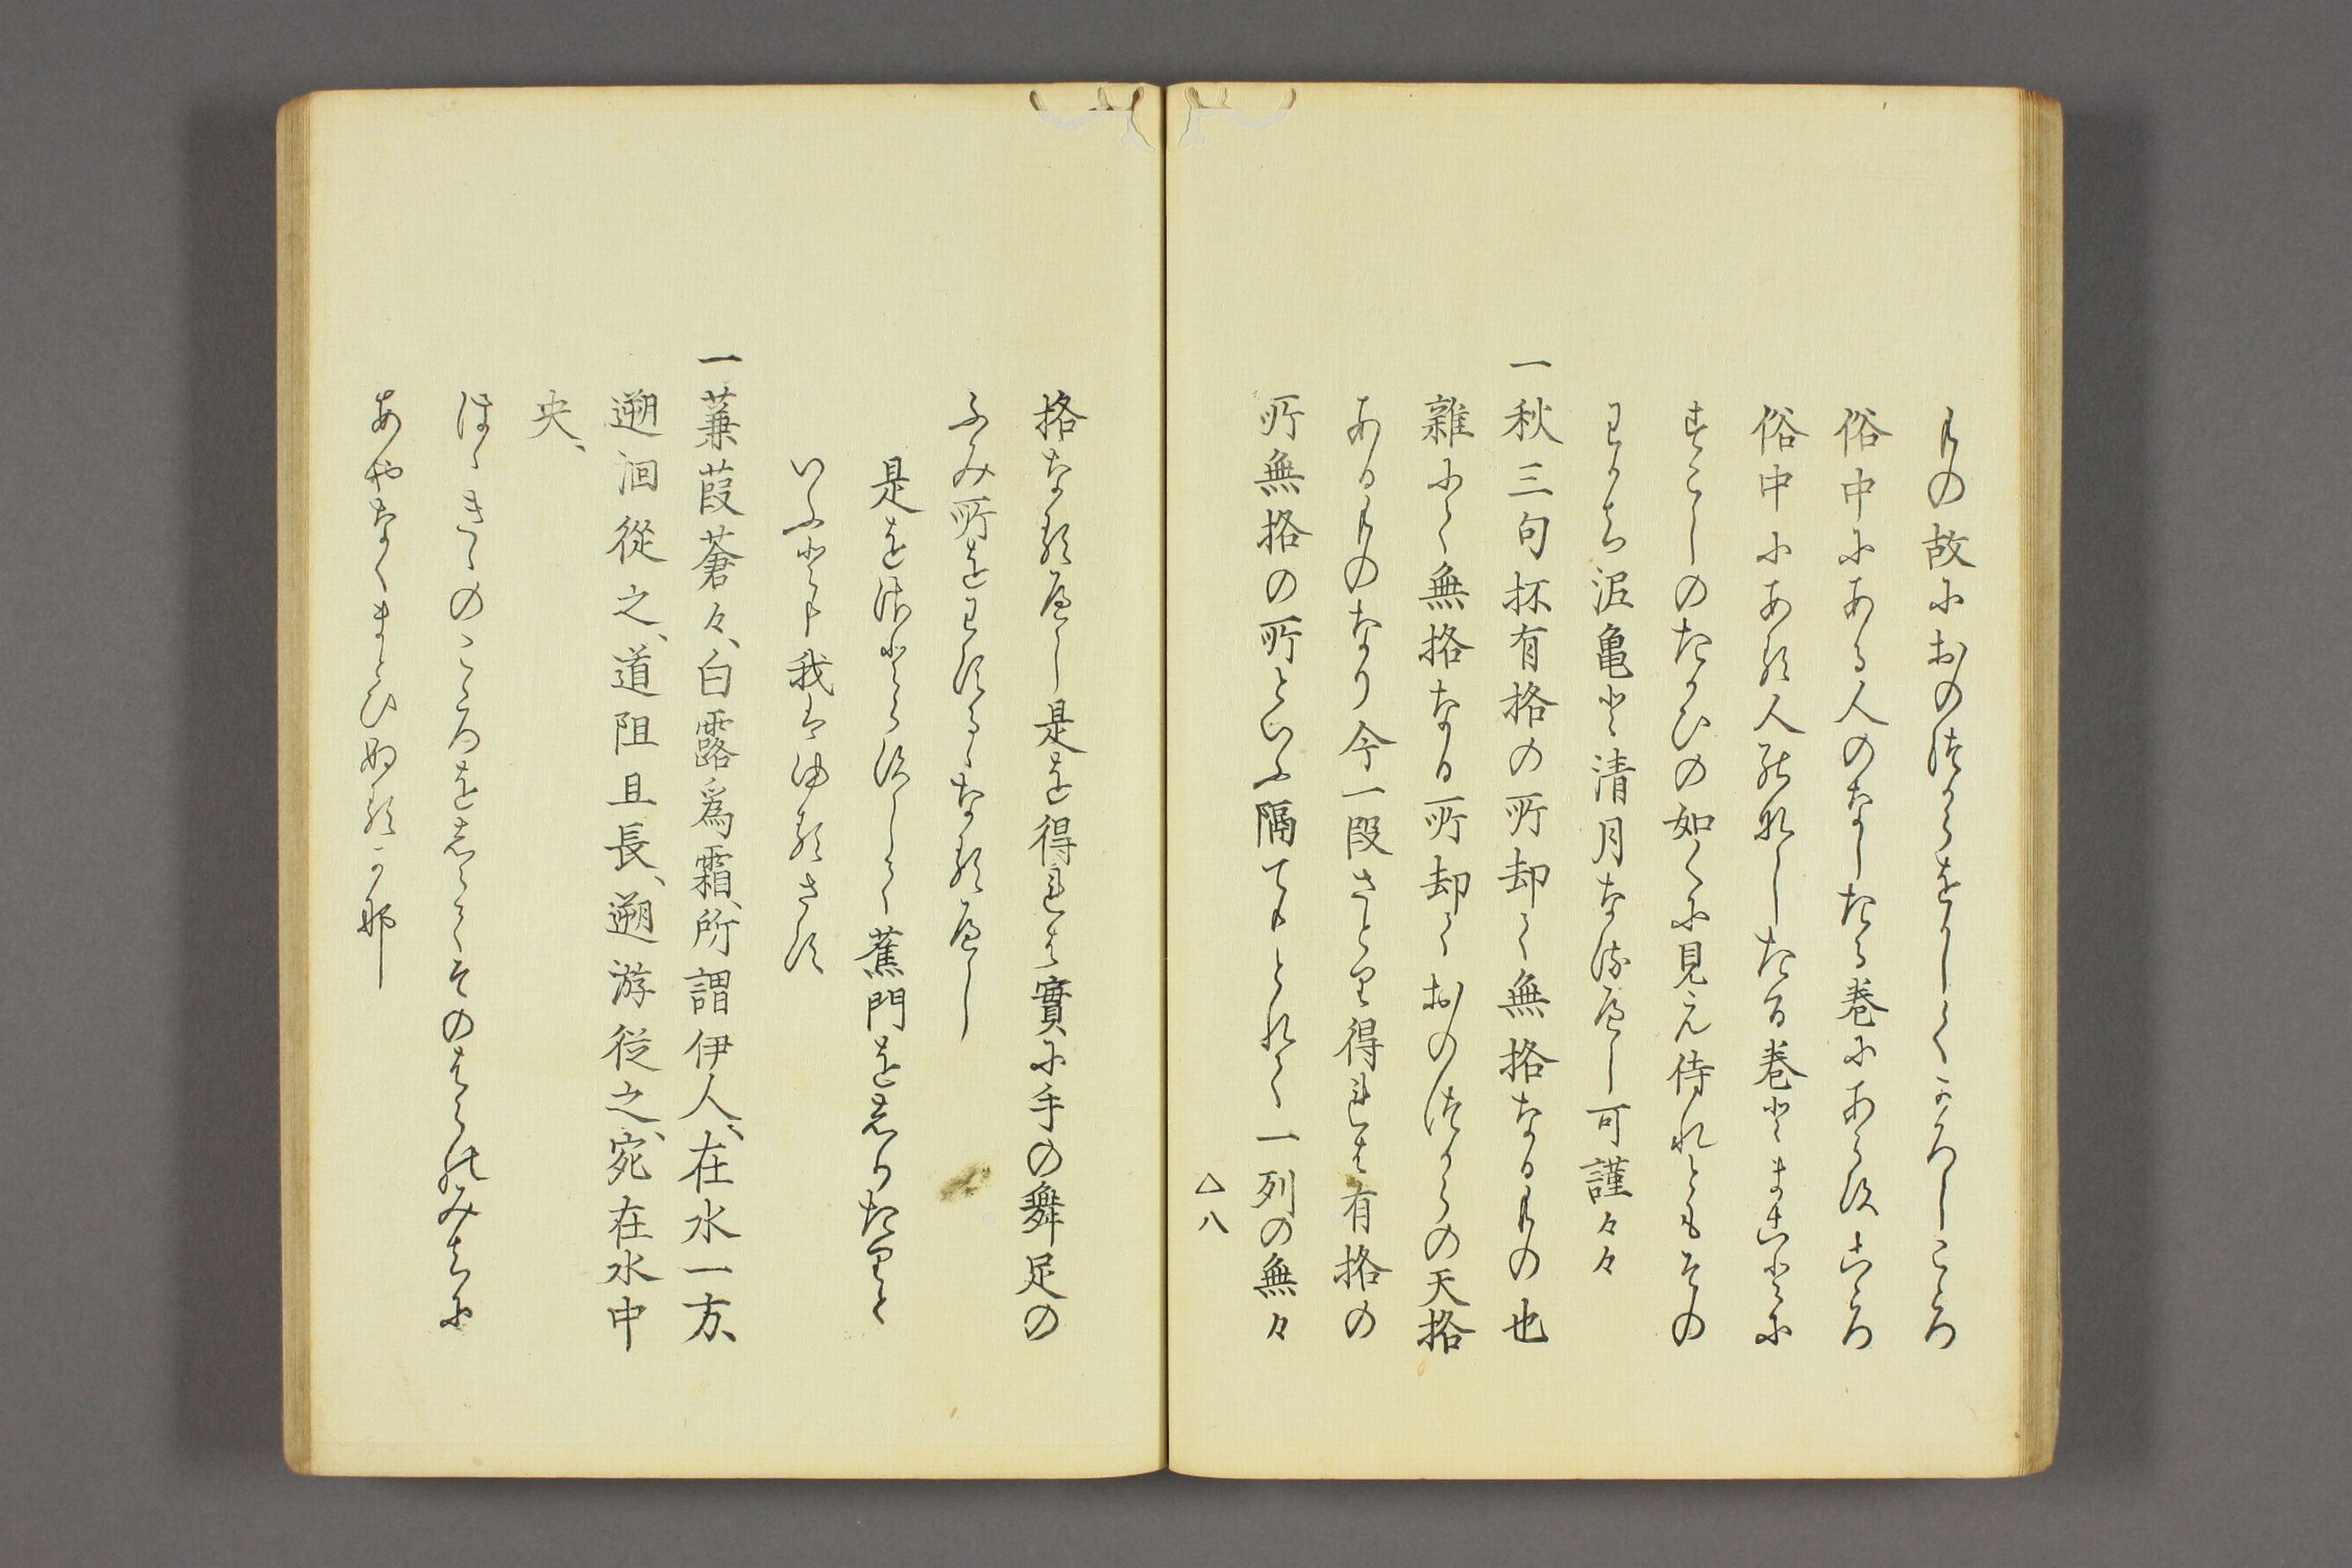 もの故におのつからをかしくよろしところ
俗中にある人のなしたる巻にあらすところ
俗中にある人能なしたる巻とまことに
すこしのたかひの如くに見え侍れともその
わかち泥亀と清月なるへし可謹々々
一秋三句杯有格の所却て無格なるもの也
雑にて無格なる所却ておのつからの天格
あるものなり今一段さとり得れは有格の
所無格の所といふ隔てもとれて一列の無々
△八
格なるへし是を得れは實に手の舞足の
ふみ所をわするゝなるへし
是を伝とらすして蕉門をしりたりと
いふとも我はゆるさす
一蒹葭蒼々、白露爲霜、所謂伊人、在水一方、
遡洄從之、道阻且長、遡游従之、宛在水中
央、
ほゝきゝのこゝろをしらてその原のみちに
あやなくまとひぬるかな